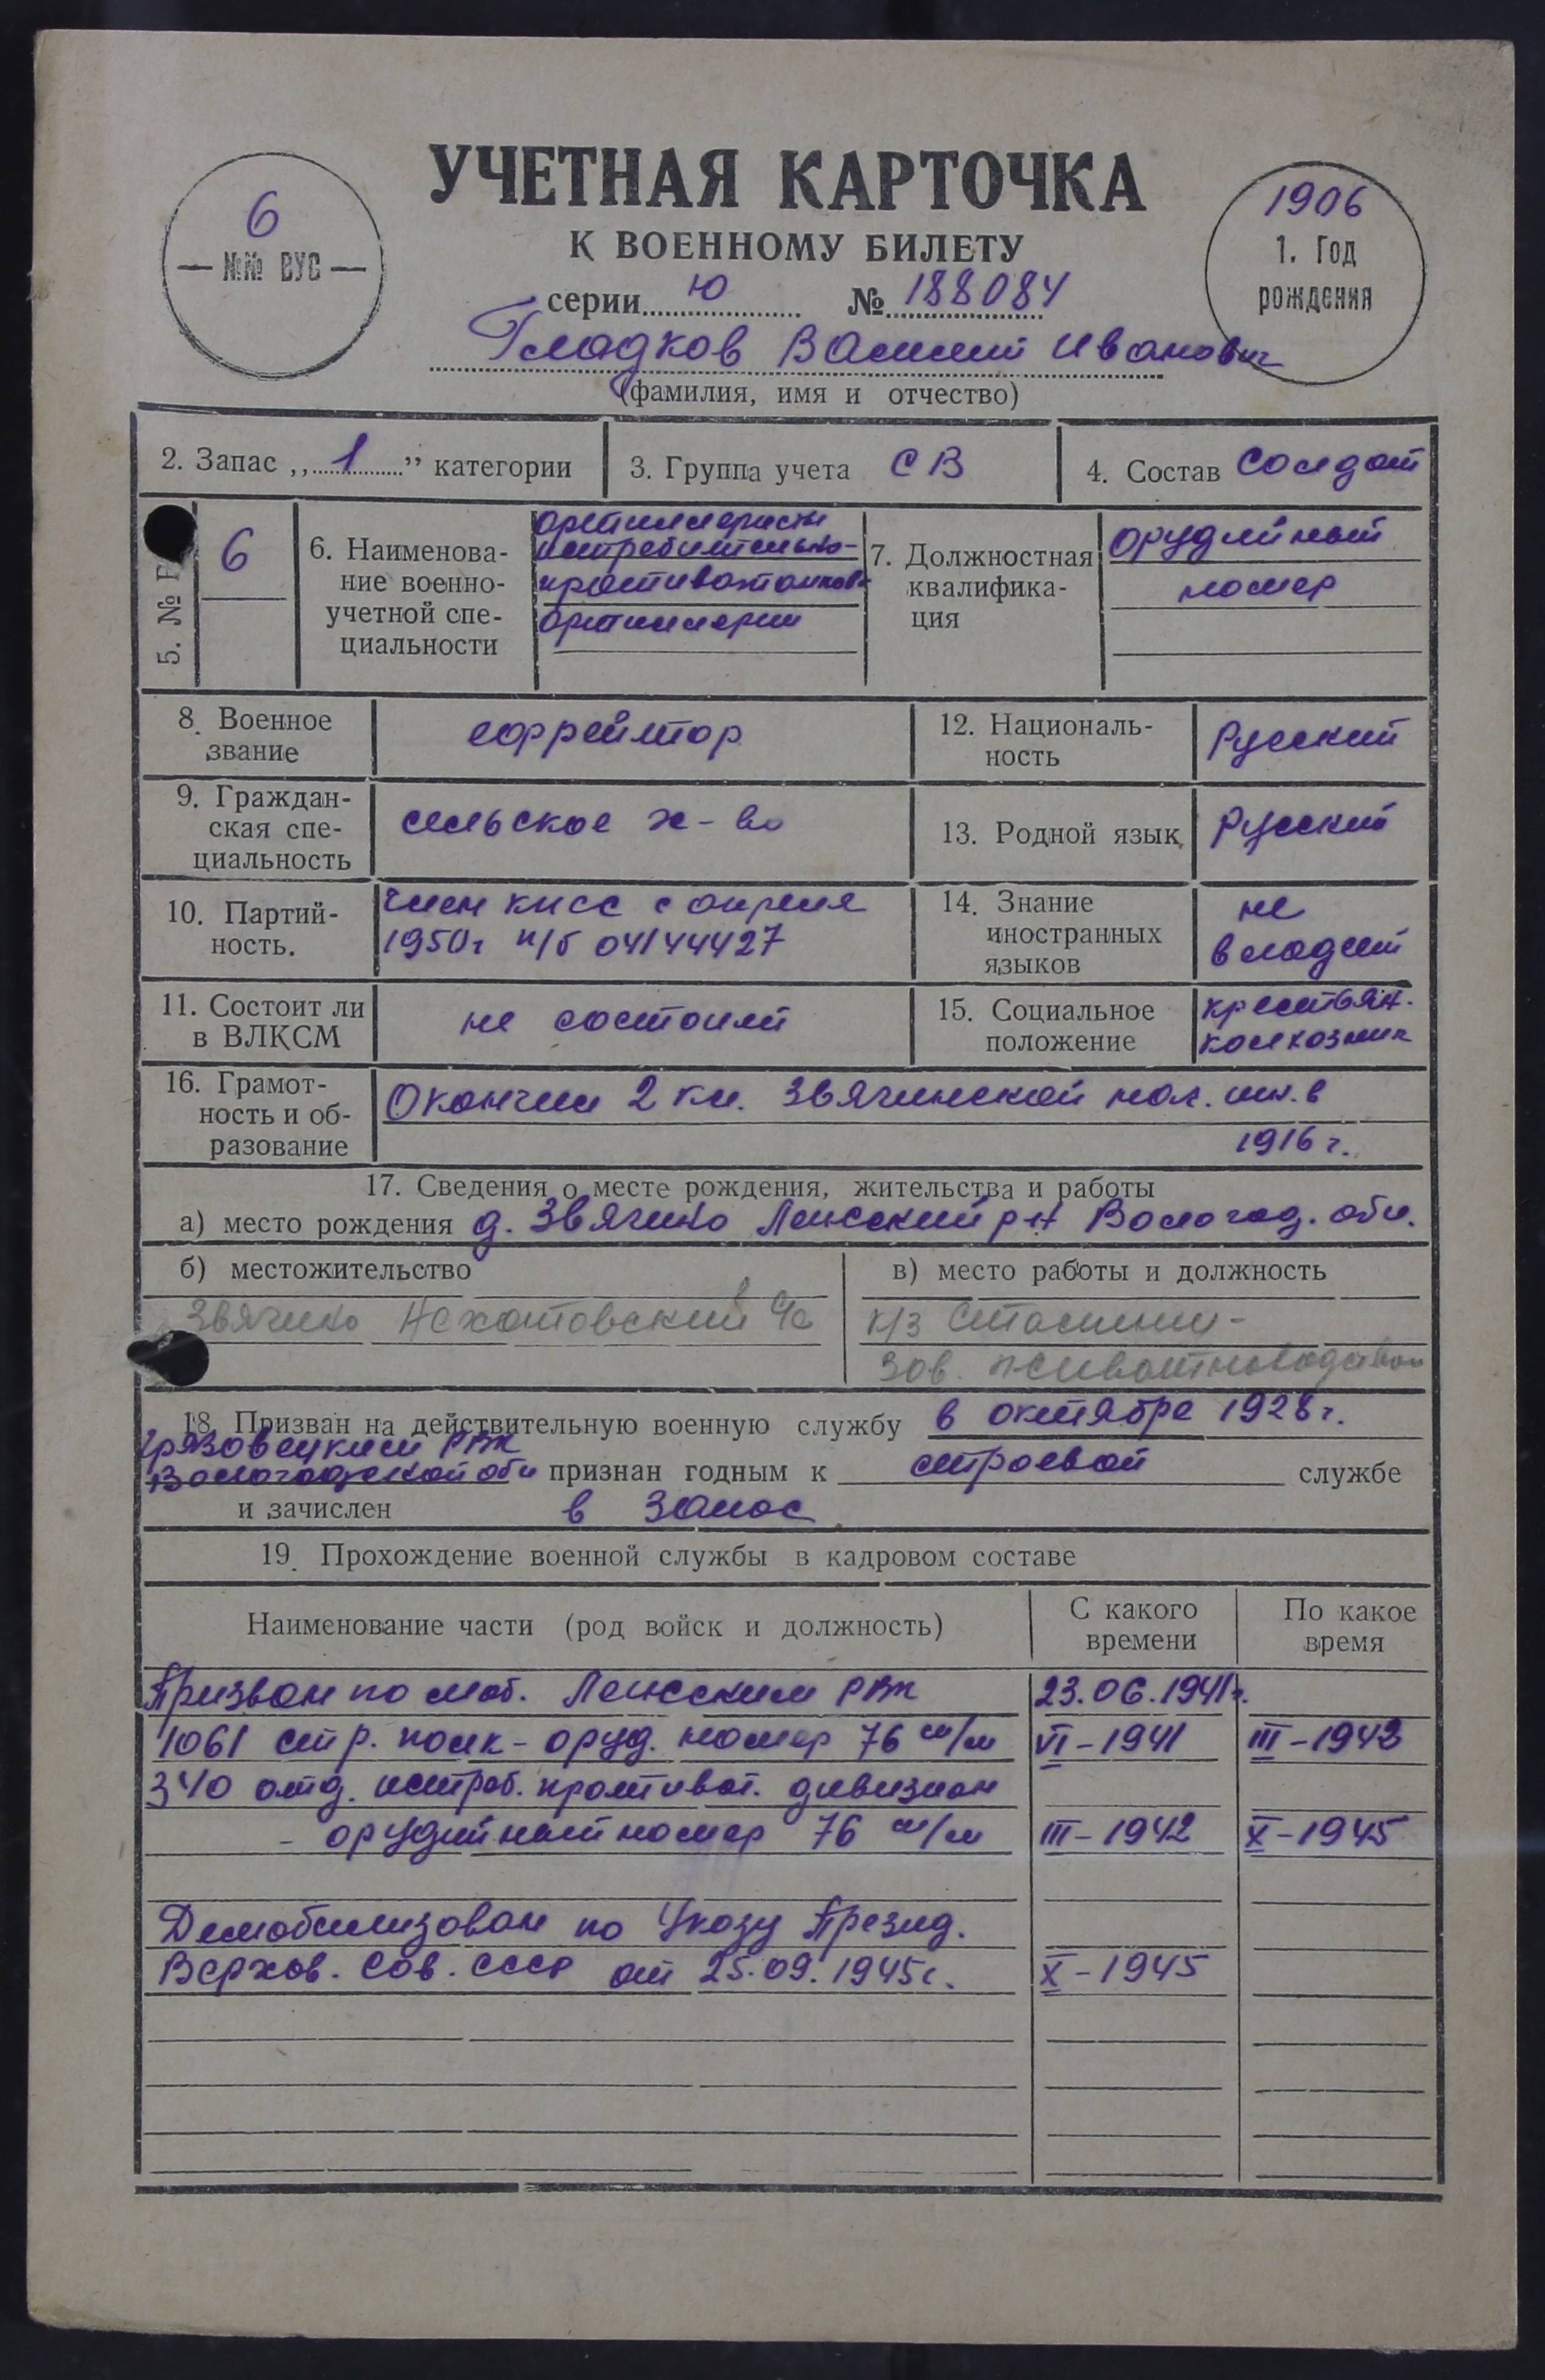 УЧЕТНАЯ КАРТОЧКА
К ВОЕННОМУ БИЛЕТУ
6
№№ ВУС
серии Ю № 188084
1906
1. Год
рождения
Гладков Василий Иванович
(фамилия, имя и отчество)
2. Запас „1” категории
3. Группа учета СВ
4. Состав Солдат
5. №
6
6. Наименова-
ние военно-
учетной спе-
циальности
артиллеристы
истребительно-
противотанков.
артиллерии
7. Должностная
квалифика-
ция
орудийный
номер
8. Военное
звание
ефрейтор
12. Националь-
ность
Русский
9. Граждан-
ская спе-
циальность
сельское х-во
13. Родной язык
Русский
10. Партий-
ность.
член кпсс с апреля
1950г п/б 04144427
14. Знание
иностранных
языков
не
владеет
11. Состоит ли
в ВЛКСМ
не состоит
15. Социальное
положение
крестьян.
колхозник
16. Грамот-
ность и об-
разование
Окончил 2 кл. Звягинской нач. шк. в
1916 г.
17. Сведения о месте рождения, жительства и работы
а) место рождения д. Звягино Лежский р-н Вологод. обл.
б) местожительство
Звягино
в) место работы и должность
к/з
Зав. животноводством
18. Призван на действительную военную службу в октябре 1928 г.
Грязовецким РВК
Вологодской обл признан годным к строевой службе
и зачислен в запас
19. Прохождение военной службы в кадровом составе
Наименование части (род войск и должность)
С какого
времени
По какое
время
Призван по моб. Лежским РВК 23.06.1941г.
1061 стр. полк - оруд. номер 76 м/м VI-1941 III-1942
340 отд. истреб. противот. дивизион
- орудийный номер 76 м/м III-1942 X-1945
Демобилизован по Указу Презид.
Верхов. Сов. СССР от 25.09.1945г. X-1945